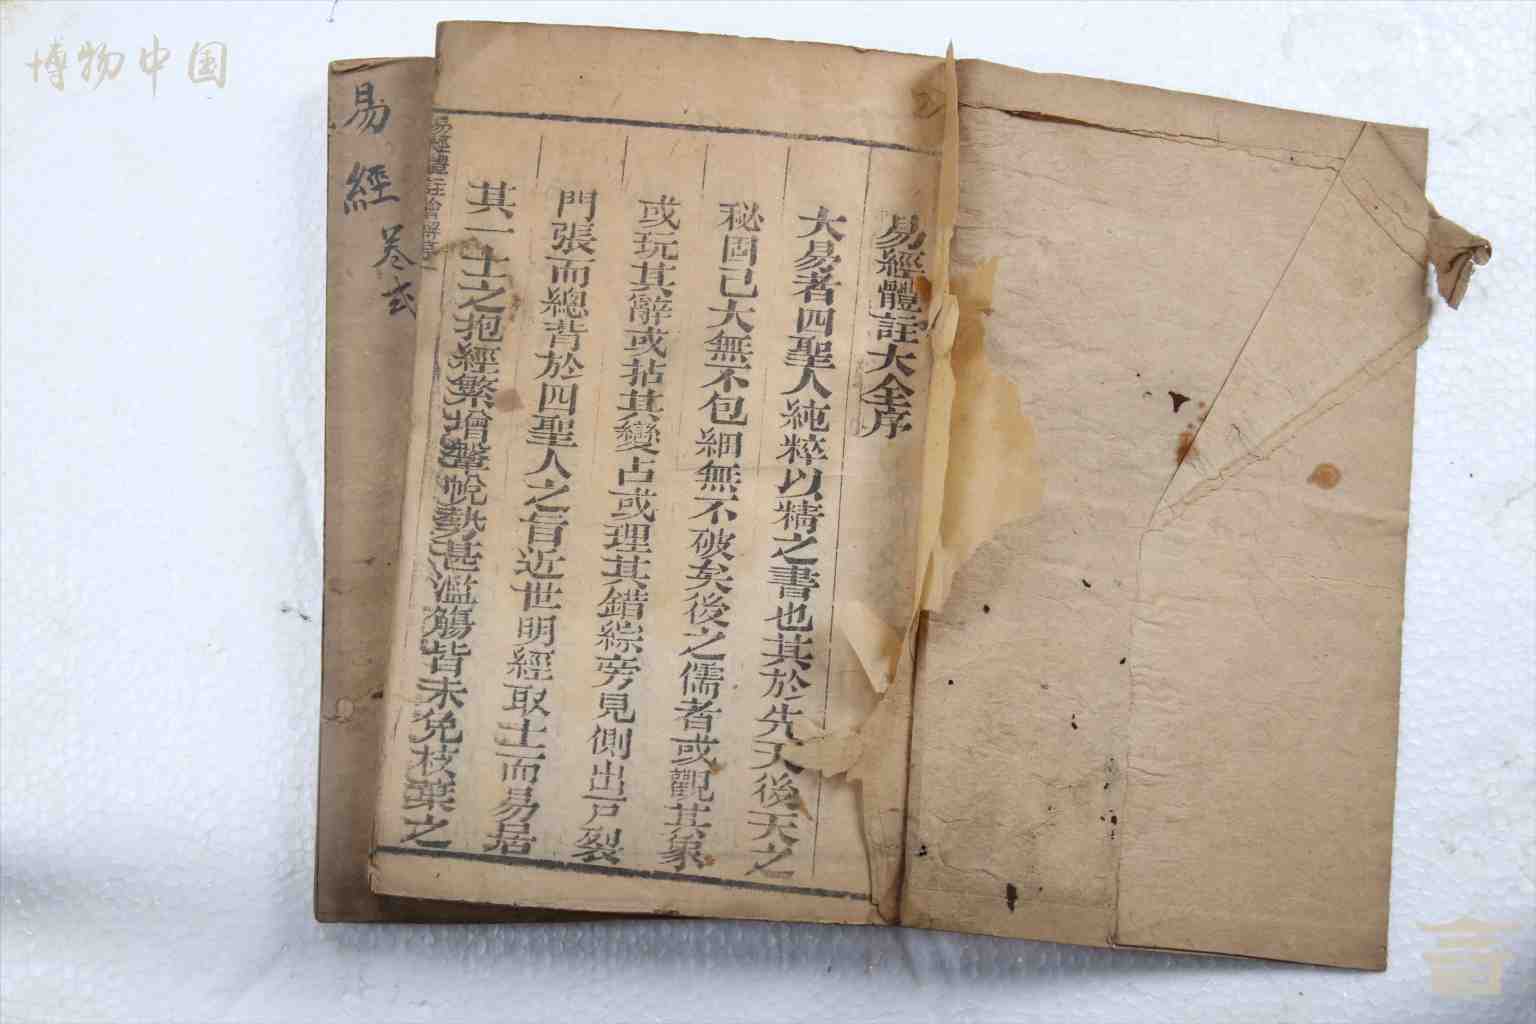 博物中国
易經體註大全序
大易者四聖人純粹以精之書也其於先天後天之
秘固已大無不包細無不破矣後之儒者或觀其象
或玩其辭或拈其變占或理其錯綜旁見側出戸裂
門張而總背於四聖人之旨近世明經取士而易居
其一士之抱經繁增鞶帨勢甚濫觴皆未免枝葉之
易經體註會解序
易經
卷弍